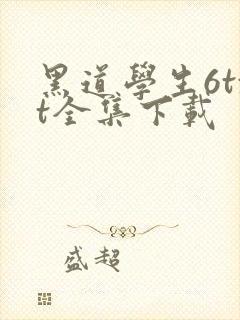 黑道學生6tx
t全集下載
盛超